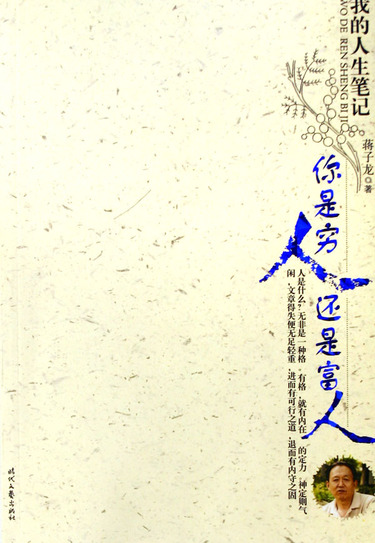 我的人生笔记
WO DE REN SHENG BI JI
蒋子龙 著
你是穷人
还是富人
人是什么?无非是一种格 有格,就有内在 的定力 神定则气
闲,文章得失便无足轻重,进而有可行之道,退而有内守之固
时代文艺出版社